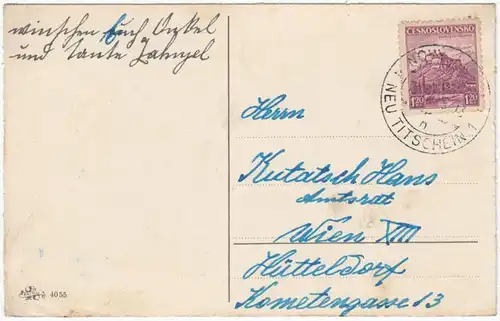 winschen Euch Onkel
und tante
ČESKOSLOVENSKO
1.20 1.20
NEU TITSCHEIN 1
Herrn
Kutatsch Hans
Amtsrat
Wien XIII
Hütteldorf
Kometengasse 13
4055